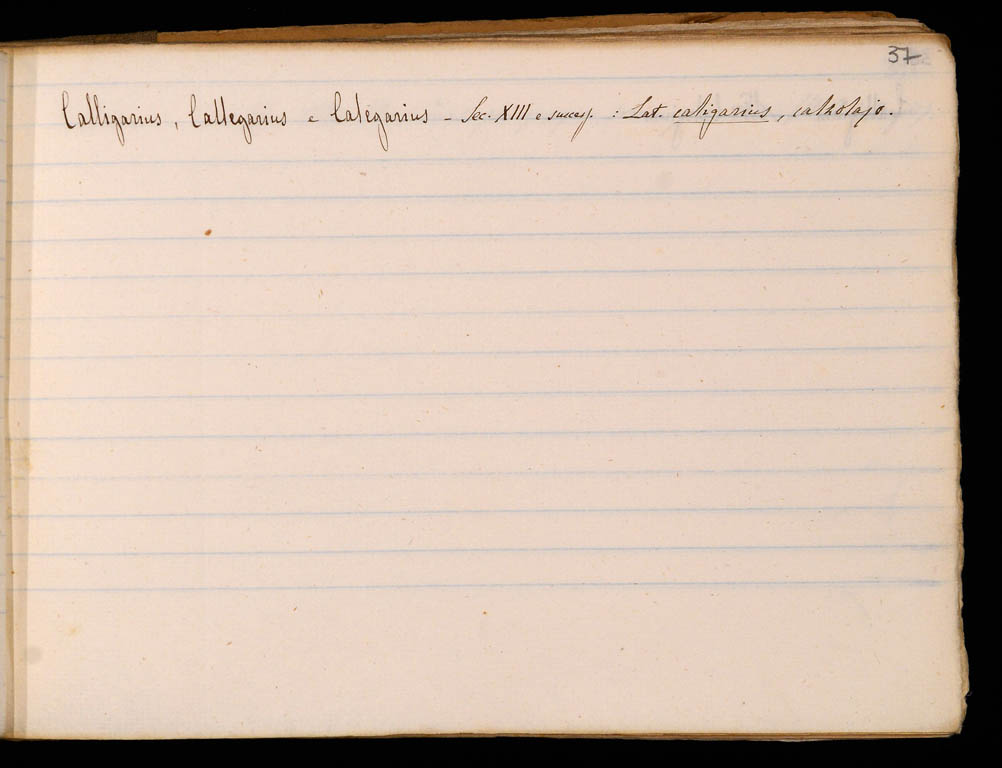 37
Calligarius, Callegarius e Calegarius - Sec. XIII e success. : Lat. caligarius, calzolajo.